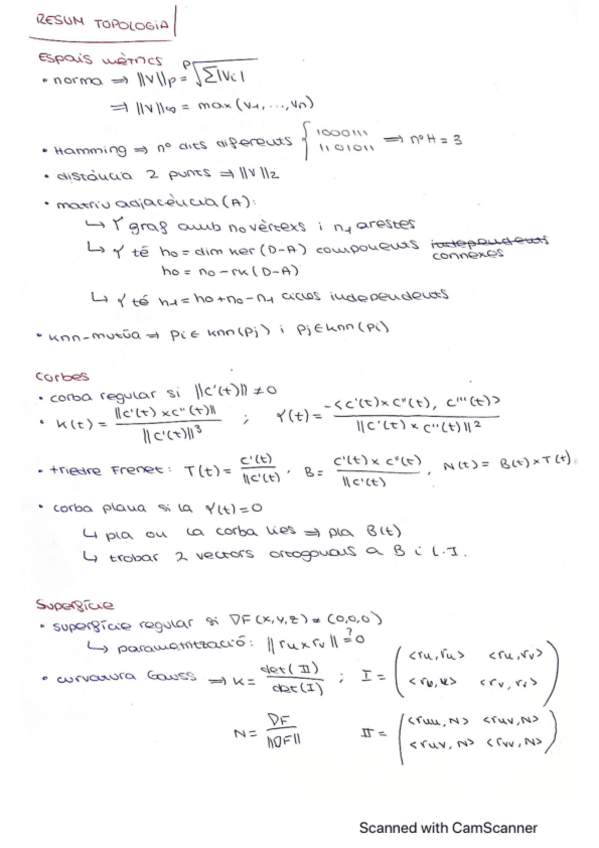 RESUM TOPOLOGIA
Espais mètrics
• norma ⇒ ||V||p = ᴾ√Σ|Vi|
⇒ ||V||∞ = max (V1, ..., Vn)
• Hamming ⇒ nº dits diferents { 1000111 1101011 ⇒ nºH = 3
• distància 2 punts ⇒ ||V||2
• matriu adjacència (A):
↳ γ graf amb n0 vèrtexs i n1 arestes
↳ γ té h0 = dim ker (D-A) components independents connexes
h0 = n0 - rk (D-A)
↳ γ té h1 = h0 + n0 - n1 cicles independents
• knn-mutúa ⇒ Pi ∈ knn(Pj) i Pj ∈ knn(Pi)
Corbes
• corba regular si ||c'(t)|| ≠ 0
• K(t) = ||c'(t) × c''(t)|| / ||c'(t)||³ ; γ(t) = -<c'(t) × c''(t), c'''(t)> / ||c'(t) × c''(t)||²
• triedre Frenet: T(t) = c'(t) / ||c'(t) , B = c'(t) × c''(t) / ||c'(t) , N(t) = B(t) × T(t).
• corba plana si la γ(t) = 0
↳ pla on la corba lies ⇒ pla B(t)
↳ trobar 2 vectors ortogonals a B i L.I.
Superfície
• superfície regular si ∇F(x,y,z) ≠ (0,0,0)
↳ parametrització: ||ru × rv|| ≟ 0
• curvatura Gauss ⇒ K = det(II) / det(I) ; I = ( <ru, ru> <ru, rv> <rv, u> <rv, rv> )
N = ∇F / ||∇F|| II = ( <ruu, N> <ruv, N> <ruv, N> <rvv, N> )
Scanned with CamScanner